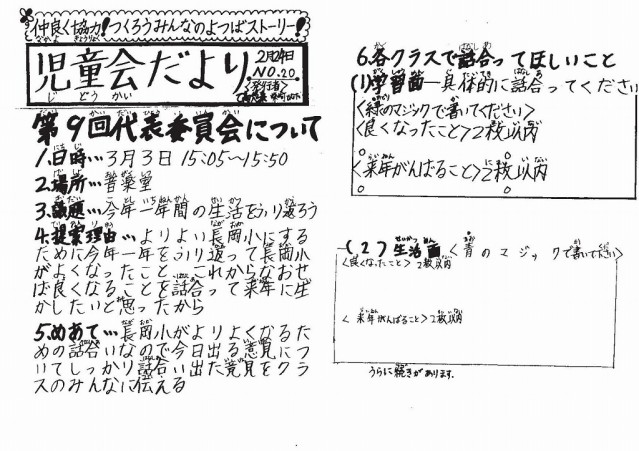 仲良く協力!つくろうみんなのよつばストーリー!
児童会だより
じどうかい
2月24日
NO.20
<発行者>
第9回代表委員会について
1.日時…3月3日 15:05~15:50
2.場所…音楽室
3.議題…今年一年間の生活をふり返ろう
4.提案理由…よりよい長岡小にする
ために今年一年をふり返って長岡小
がよくなったこと、これからなおせ
ば良くなることを話合って来年に生
かしたいと思ったから
5.めあて…長岡小がよりよくなるた
めの話合いなので今日出る意見につ
いてしっかり話合い出た意見をクラ
スのみんなに伝える
6.各クラスで話合ってほしいこと
(1)学習面―具体的に話合ってください
<緑のマジックで書いてください>
<良くなったこと>2枚以内
<来年がんばること>2枚以内
(2)生活面<青のマジックで書いてください>
<良くなったこと>2枚以内
<来年がんばること>2枚以内
うらに続きがあります。